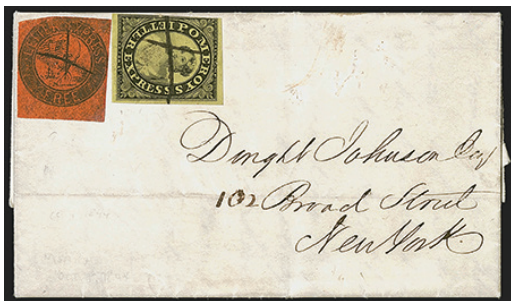 POMEROY'S LETTER EXPRESS
Dwight Johnson Esq
102 Broad Street
New York.